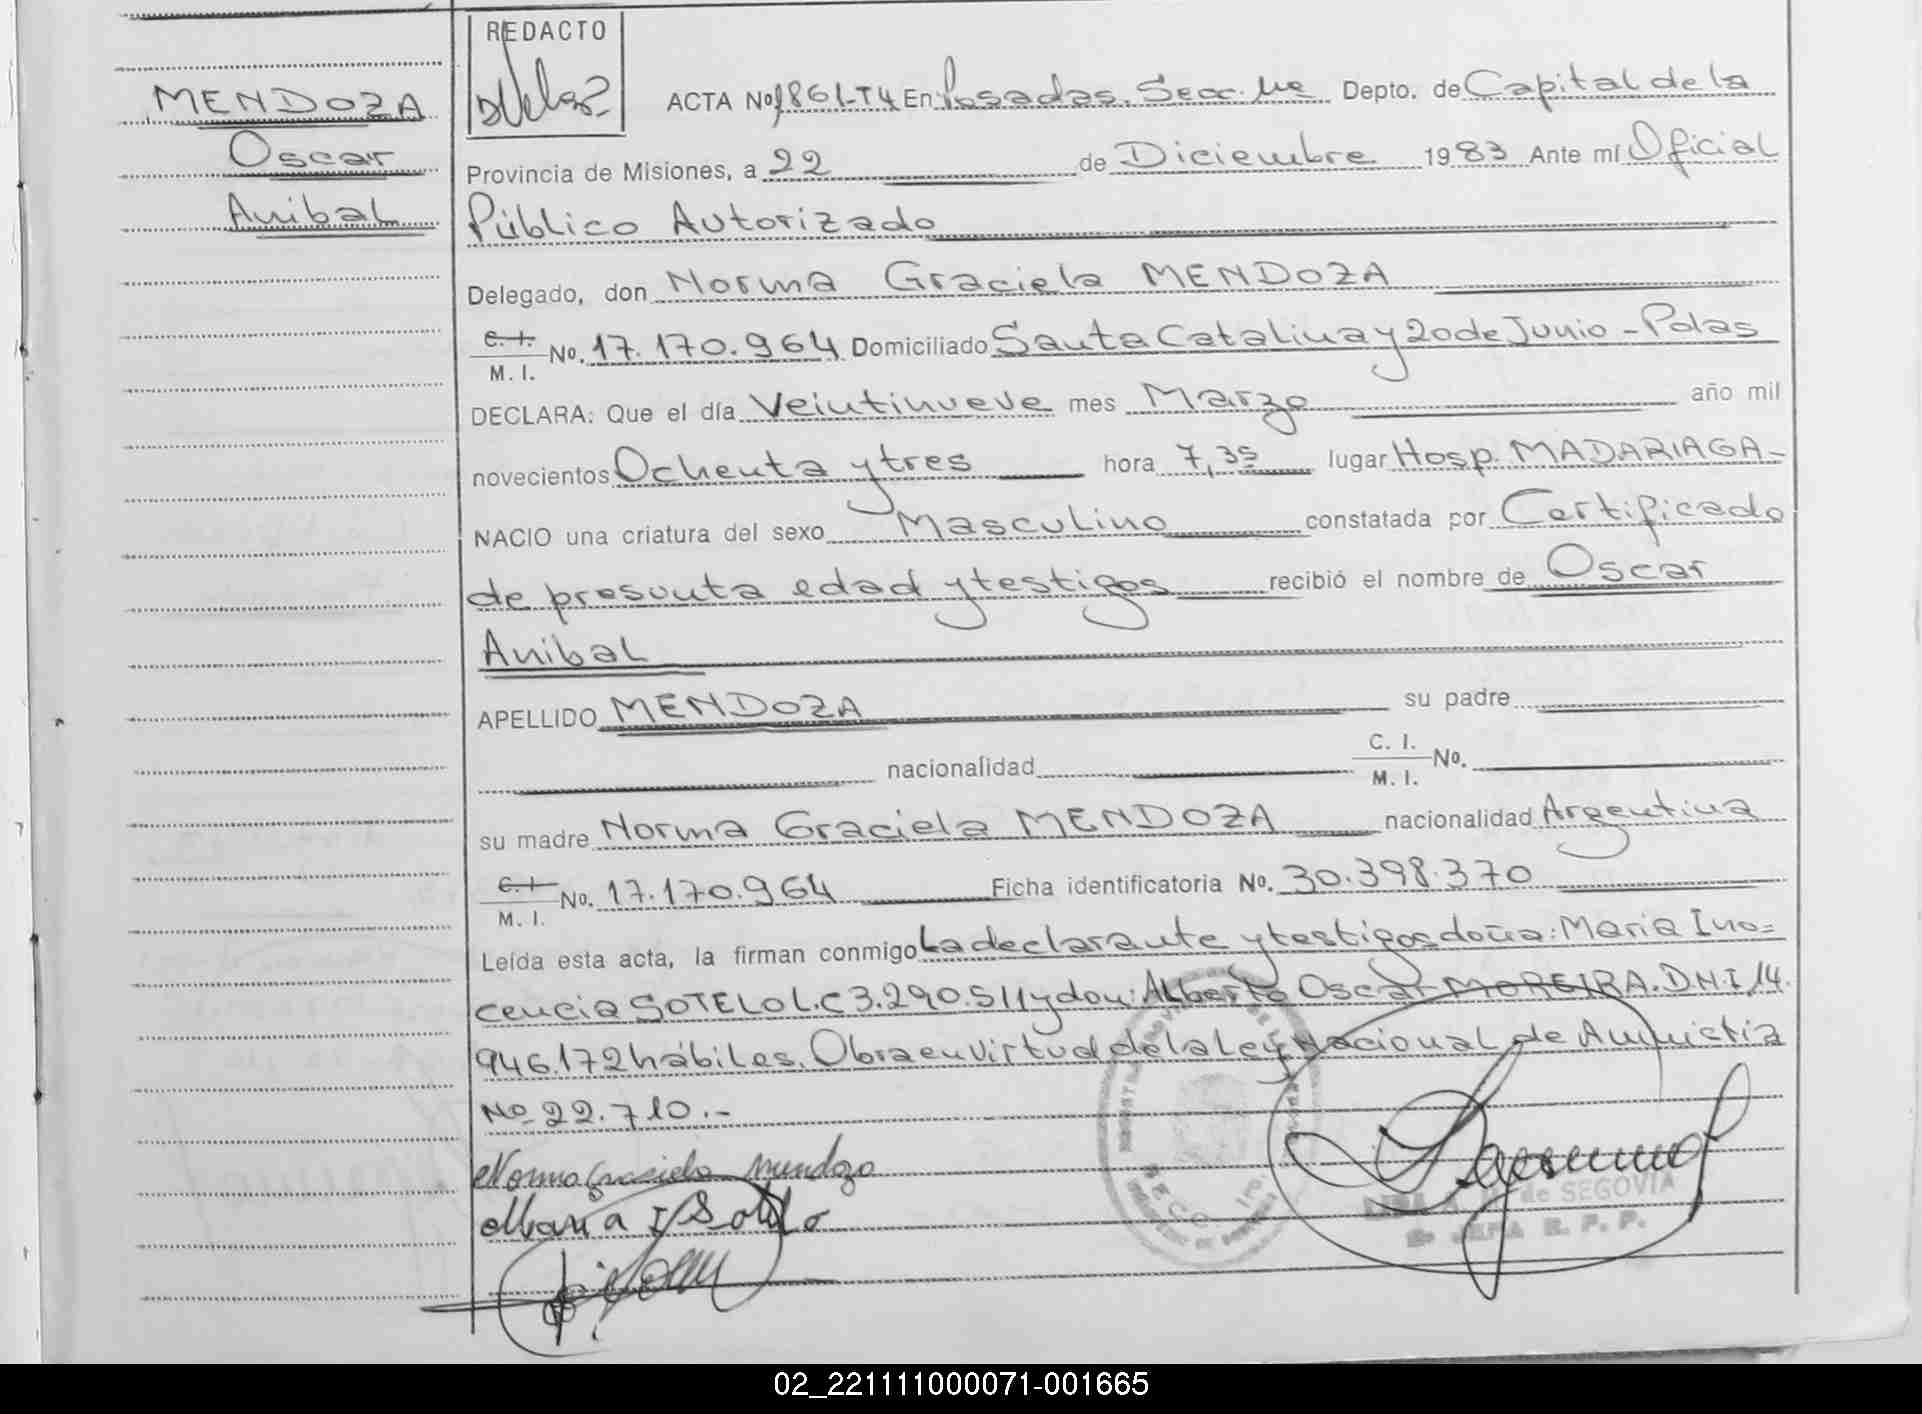 REDACTO
MENDOZA
Oscar
Anibal
ACTA No 1861-T4 En Posadas. Secc. Depto. de Capital de la
Provincia de Misiones, a 22 de Diciembre 1983 Ante mí Oficial
Público Autorizado
Delegado, don Norma Graciela MENDOZA
C. I.
M. I.
No. 17.170.964 Domiciliado Santa Catalina y 20 de Junio - Pdas
DECLARA: Que el día Veintinueve mes Marzo año mil
novecientos Ochenta y tres hora 7,35 lugar Hosp. MADARIAGA-
NACIO una criatura del sexo Masculino constatada por Certificado
de presunta edad y testigos recibió el nombre de Oscar
Anibal
APELLIDO MENDOZA su padre
nacionalidad C. I.
M. I.
No.
su madre Norma Graciela MENDOZA nacionalidad Argentina
C. I.
M. I.
No. 17.170.964 Ficha identificatoria No. 30.398.370
Leída esta acta, la firman conmigo La declarante y testigos doña: Maria Ino=
cencia SOTELO L.C 3.290.511 y don: Alberto Oscar MOREIRA. D.N.I 14.
946.172 hábiles. Obra en virtud de la Ley Nacional de Amnistia
No 22.710.-
Norma Graciela Mendoza
Maria I Sotelo
de SEGOVIA
JEFA R. P. P.
02_221111000071-001665